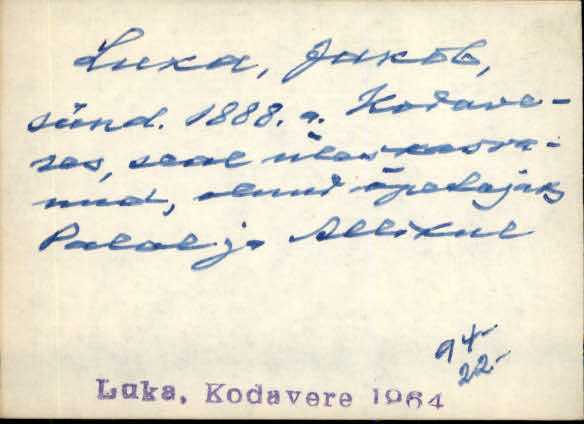 Luka, Jakob,
sünd. 1888. a. Kodave-
res, seal üleskasva-
nud, olnud õpetajaks
Palal ja Allikul
94-
22-
Luka, Kodavere 1964